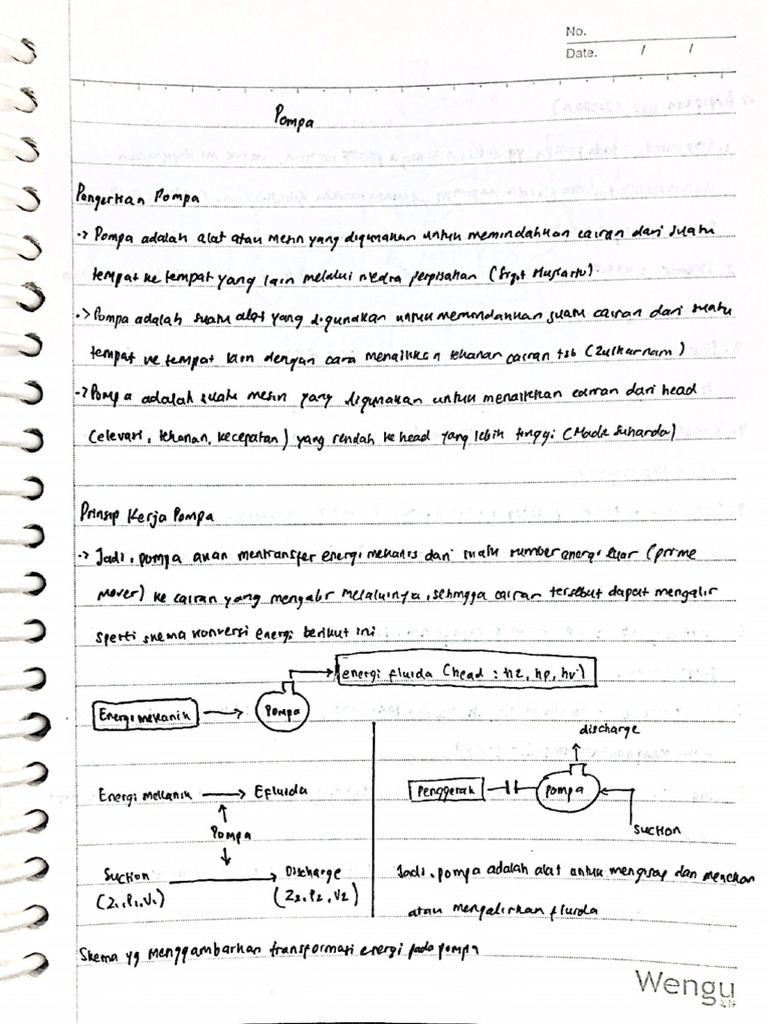 No.
Date. / /
Pompa
Pengertian Pompa
-> Pompa adalah alat atau mesin yang digunakan untuk memindahkan cairan dari suatu
tempat ke tempat yang lain melalui media perpipahan (Sigit Mujiarto)
-> Pompa adalah suatu alat yang digunakan untuk memindahkan suatu cairan dari suatu
tempat ke tempat lain dengan cara menaikkan tekanan cairan tsb (Zulkarnain)
-> Pompa adalah suatu mesin yang digunakan untuk menaikkan cairan dari head
(elevasi, tekanan, kecepatan) yang rendah ke head yang lebih tinggi (Made Suharda)
Prinsip Kerja Pompa
-> Jadi, pompa akan mentransfer energi mekanis dari suatu sumber energi luar (prime
mover) ke cairan yang mengalir melaluinya, sehingga cairan tersebut dapat mengalir
sperti skema konversi energi berikut ini
energi fluida (head : hz, hp, hv)
Energi mekanik → Pompa
discharge
Penggerak Pompa
Suction
Energi mekanik → E fluida
Pompa
Suction → Discharge
(Z1, P1, V1) (Z2, P2, V2)
Jadi, pompa adalah alat untuk mengisap dan menekan
atau mengalirkan fluida
Skema yg menggambarkan transformasi energi pada pompa
Wengu